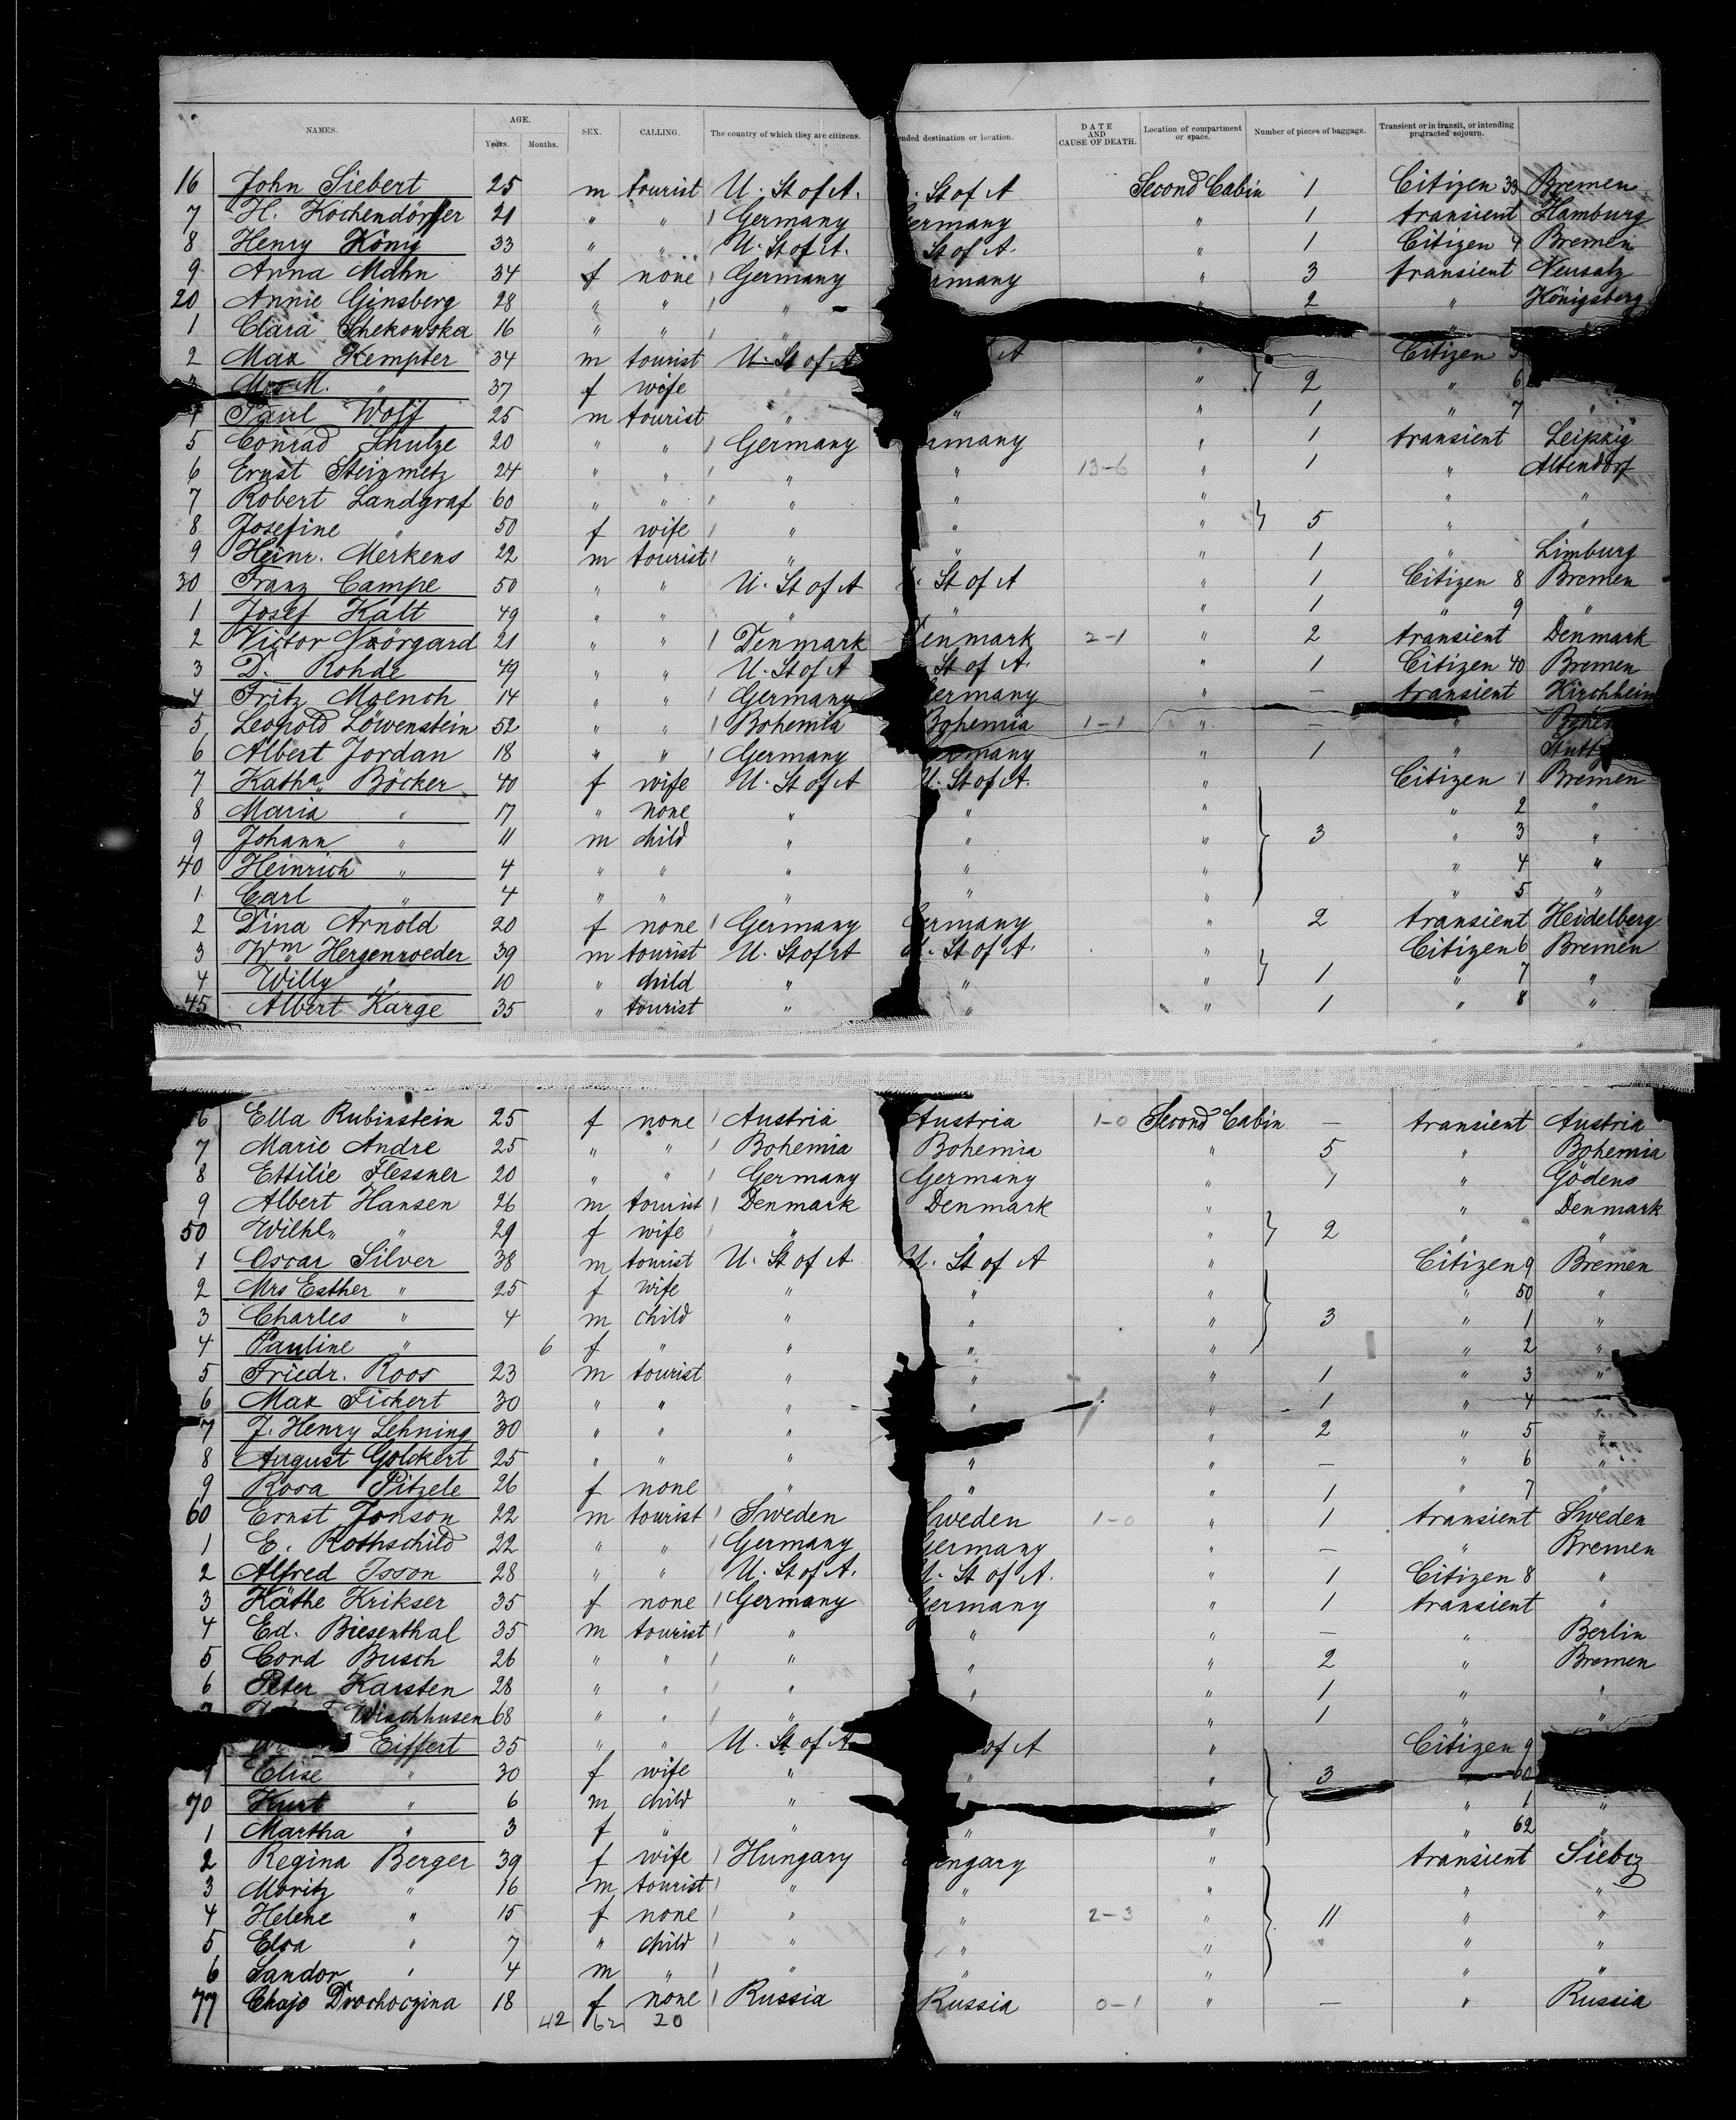 NAMES. AGE. Years. Months. SEX. CALLING. The country of which they are citizens. ended destination or location. DATE AND CAUSE OF DEATH. Location of compartment or space. Number of pieces of baggage. Transient or in transit, or intending protracted sojourn.
16 John Siebert 25 m tourist U. St of A. St of A Second Cabin 1 Citizen 33 Bremen
7 H. Kochendörffer 21 " " 1 Germany ermany " 1 transient Hamburg
8 Henry König 33 " " U. St of A. St of A. " 1 Citizen 4 Bremen
9 Anna Mahn 34 f none 1 Germany rmany " 3 transient Neusalz
20 Annie Ginsberg 28 " " 1 " " 2 " Königsberg
1 Clara Schekowska 16 " " 1 " "
2 Max Kempter 34 m tourist U. St of A A " Citizen 5
Mrs M. " 37 f wife " " 2 " 6
4 Paul Wolf 25 m tourist " " " 1 " 7 "
5 Conrad Schulze 20 " " 1 Germany rmany " 1 transient Leipzig
6 Ernst Steinmetz 24 " " 1 " " 13-6 " 1 " Altendorf
7 Robert Landgraf 60 " " 1 " " " " "
8 Josefine " 50 f wife 1 " " " 5 " "
9 Heinr. Merkens 22 m tourist 1 " " " 1 " Limburg
30 Franz Campe 50 " " U. St of A St of A " 1 Citizen 8 Bremen
1 Josef Kalt 49 " " " " " 1 " 9 "
2 Victor Nxörgard 21 " " 1 Denmark Denmark 2-1 " 2 transient Denmark
3 D. Rohde 49 " " U. St of A St of A. " 1 Citizen 40 Bremen
4 Fritz Moench 14 " " 1 Germany Germany " — transient Kirchheim
5 Leopold Löwenstein 52 " " 1 Bohemia Bohemia 1-1 " — "
6 Albert Jordan 18 " " 1 Germany rmany " 1 " Stuttg
7 Katha Böcker 40 f wife U. St of A U. St of A. " Citizen 1 Bremen
8 Maria " 17 " none " " " " 2 "
9 Johann " 11 m child " " " 3 " 3 "
40 Heinrich " 4 " " " " " " 4 "
1 Carl " 4 " " " " " " 5 "
2 Dina Arnold 20 f none 1 Germany Germany " 2 transient Heidelberg
3 Wm Hergenroeder 39 m tourist U. St of A U. St of A. " Citizen 6 Bremen
4 Willy " 10 " child " " " 1 " 7 "
45 Albert Karge 35 " tourist " " " 1 " 8 "
6 Ella Rubinstein 25 f none 1 Austria Austria 1-0 Second Cabin — transient Austria
7 Marie Andre 25 " " 1 Bohemia Bohemia " 5 " Bohemia
8 Ettilie Flessner 20 " " 1 Germany Germany " 1 " Gödens
9 Albert Hansen 26 m tourist 1 Denmark Denmark " " Denmark
50 Wilhl. " 29 f wife 1 " " " 2 " "
1 Oscar Silver 38 m tourist U. St of A U. St of A " Citizen 9 Bremen
2 Mrs Esther " 25 f wife " " " " 50 "
3 Charles " 4 m child " " " 3 " 1 "
4 Pauline " 6 f " " " " " 2 "
5 Friedr. Roos 23 m tourist " " " 1 " 3 "
6 Max Fickert 30 " " " " " 1 " 4 "
7 J. Henry Lehning 30 " " " " 2 " 5 "
8 August Golckert 25 " " " " " — " 6 "
9 Rosa Pitzele 26 f none " " " 1 " 7 "
60 Ernst Jonson 22 m tourist 1 Sweden Sweden 1-0 " 1 transient Sweden
1 E. Rothschild 22 " " 1 Germany Germany " — " Bremen
2 Alfred Isson 28 " " U. St of A. U. St of A. " 1 Citizen 8 "
3 Käthe Krikser 35 f none 1 Germany Germany " 1 transient "
4 Ed. Biesenthal 35 m tourist 1 " " " — " Berlin
5 Cord Busch 26 " " 1 " " " 2 " Bremen
6 Peter Karsten 28 " " 1 " " " 1 " "
Wischhusen 68 " " 1 " " 1 " "
Eiffert 35 " " U. St of A of A " Citizen 9
9 Elise " 30 f wife " " " 3 60
70 Kurt " 6 m child " " " 1 "
1 Martha " 3 f " " " " " 62 "
2 Regina Berger 39 f wife 1 Hungary ngary " transient Siebiz
3 Moritz " 16 m tourist 1 " " " " "
4 Helene " 15 f none 1 " " 2-3 " 11 " "
5 Elsa " 7 " child 1 " " " " "
6 Sandor " 4 m " 1 " " " " "
77 Chaje Drochoczina 18 f none 1 Russia Russia 0-1 " — " Russia
42 62 20